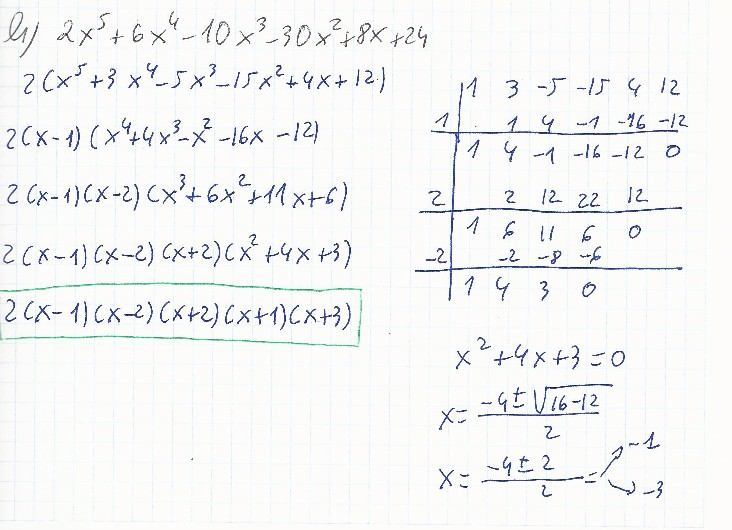 h) 2x⁵+6x⁴-10x³-30x²+8x+24
2(x⁵+3x⁴-5x³-15x²+4x+12)
2(x-1)(x⁴+4x³-x²-16x-12)
2(x-1)(x-2)(x³+6x²+11x+6)
2(x-1)(x-2)(x+2)(x²+4x+3)
2(x-1)(x-2)(x+2)(x+1)(x+3)
1 3 -5 -15 4 12
1 1 4 -1 -16 -12
1 4 -1 -16 -12 0
2 2 12 22 12
1 6 11 6 0
-2 -2 -8 -6
1 4 3 0
x²+4x+3=0
x= (-4±√(16-12))/2
x= (-4±2)/2 = -1
-3